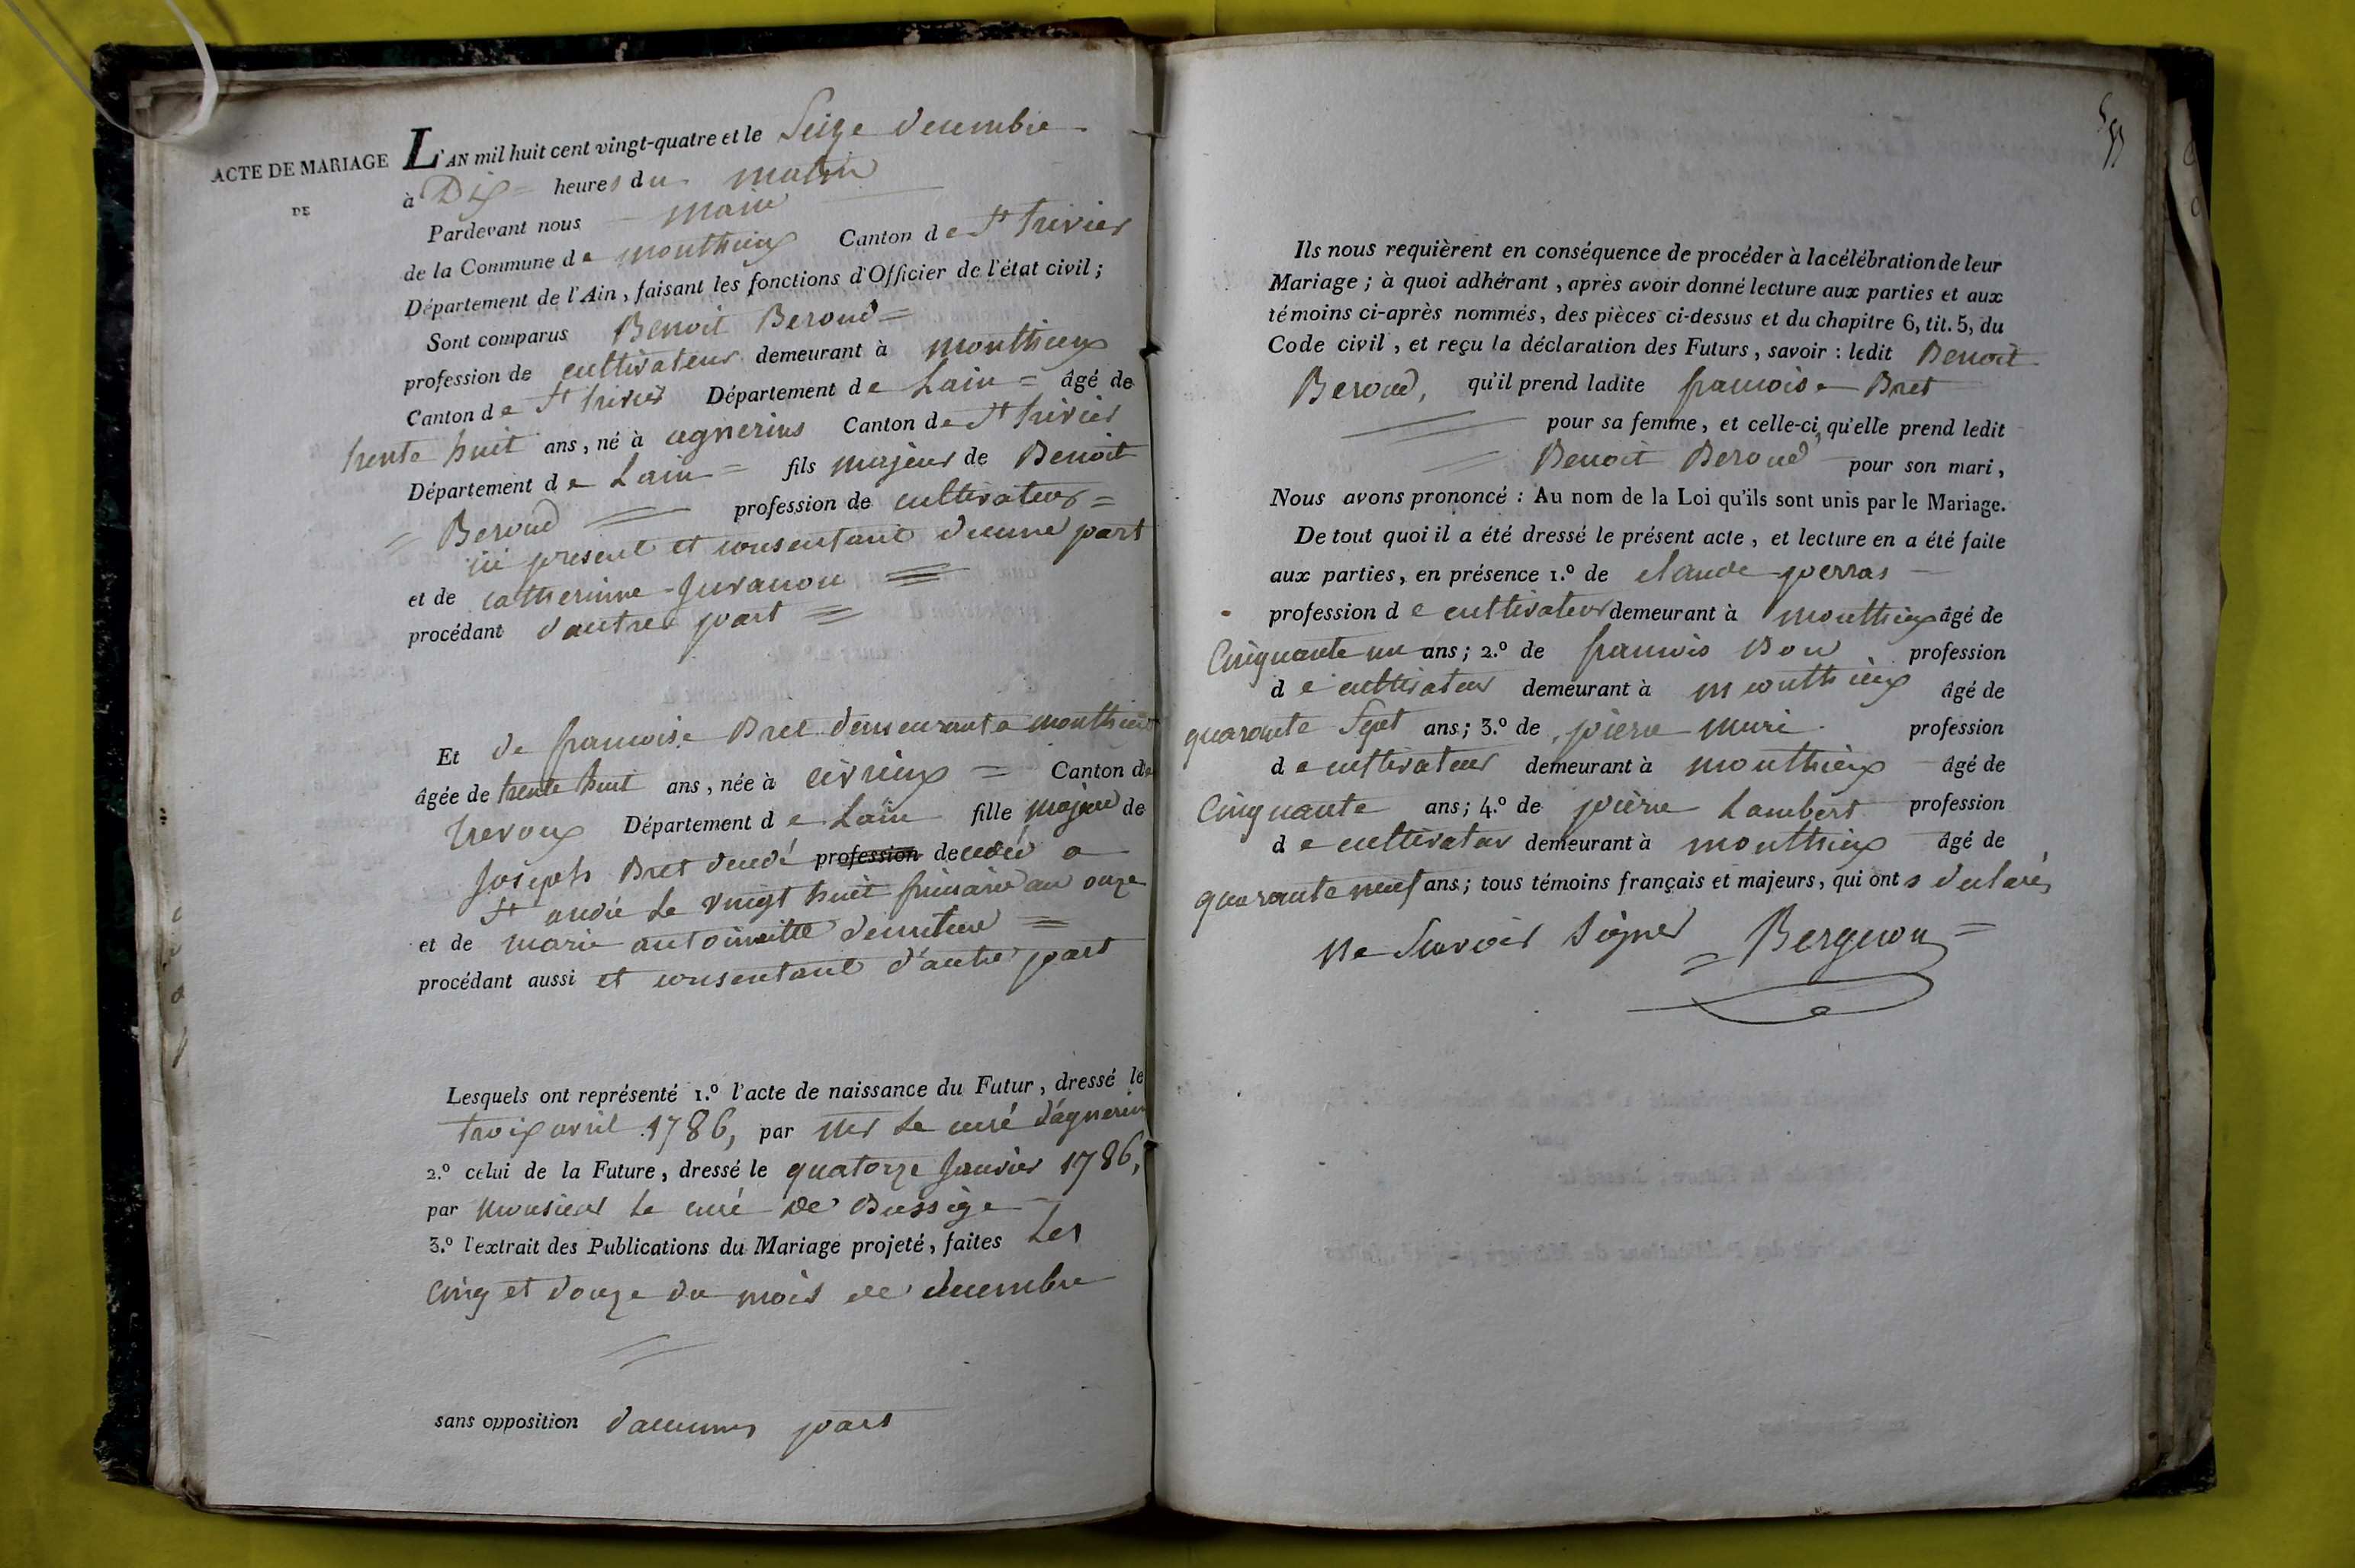 ACTE DE MARIAGE
DE
L'AN mil huit cent vingt-quatre et le Seize decembre
à Dix heures du matin
Pardevant nous maire
de la Commune de monthieux Canton de St trivier
Département de l'Ain, faisant les fonctions d'Officier de l'état civil;
Sont comparus Benoit Beroud
profession de cultivateur demeurant à monthieux
Canton de St trivier Département de Lain âgé de
trente huit ans, né à agnerins Canton de St trivier
Département de Lain fils majeur de Benoit
Beroud profession de cultivateur
ici present et consentant d'eunne part
et de catherinne Juvanon
procédant d'autre part
Et de francoise Bret demeurant a monthieux
âgée de trente huit ans, née à civrieux Canton de
trevoux Département de Lain fille majeure de
Joseph Bret profession decedé a
St andré le vingt huit frimaire an onze
et de marie antoinette
procédant aussi et consentant d'autre part
Lesquels ont représenté 1.º l'acte de naissance du Futur, dressé le
troix avril 1786, par Mr le curé d'agnerin
2.º celui de la Future, dressé le quatorze Janvier 1786,
par monsieur le curé de Bussige
3.º l'extrait des Publications du Mariage projeté, faites les
cinq et douze du mois de decembre
sans opposition d'aucunes part
Ils nous requièrent en conséquence de procéder à la célébration de leur
Mariage; à quoi adhérant, après avoir donné lecture aux parties et aux
témoins ci-après nommés, des pièces ci-dessus et du chapitre 6, tit. 5, du
Code civil, et reçu la déclaration des Futurs, savoir : ledit Benoit
Beroud, qu'il prend ladite francoise Bret
pour sa femme, et celle-ci, qu'elle prend ledit
Benoit Beroud pour son mari,
Nous avons prononcé : Au nom de la Loi qu'ils sont unis par le Mariage.
De tout quoi il a été dressé le présent acte, et lecture en a été faite
aux parties, en présence 1.º de claude perras
profession de cultivateur demeurant à monthieux âgé de
Cinquante un ans; 2.º de francois Bou profession
de cultivateur demeurant à monthieux âgé de
quarante Sept ans; 3.º de pierre muri profession
de cultivateur demeurant à monthieux âgé de
Cinquante ans; 4.º de pierre Lambert profession
de cultivateur demeurant à monthieux âgé de
quarante neuf ans; tous témoins français et majeurs, qui onts declarés
ne Savoir Signer Bergeron